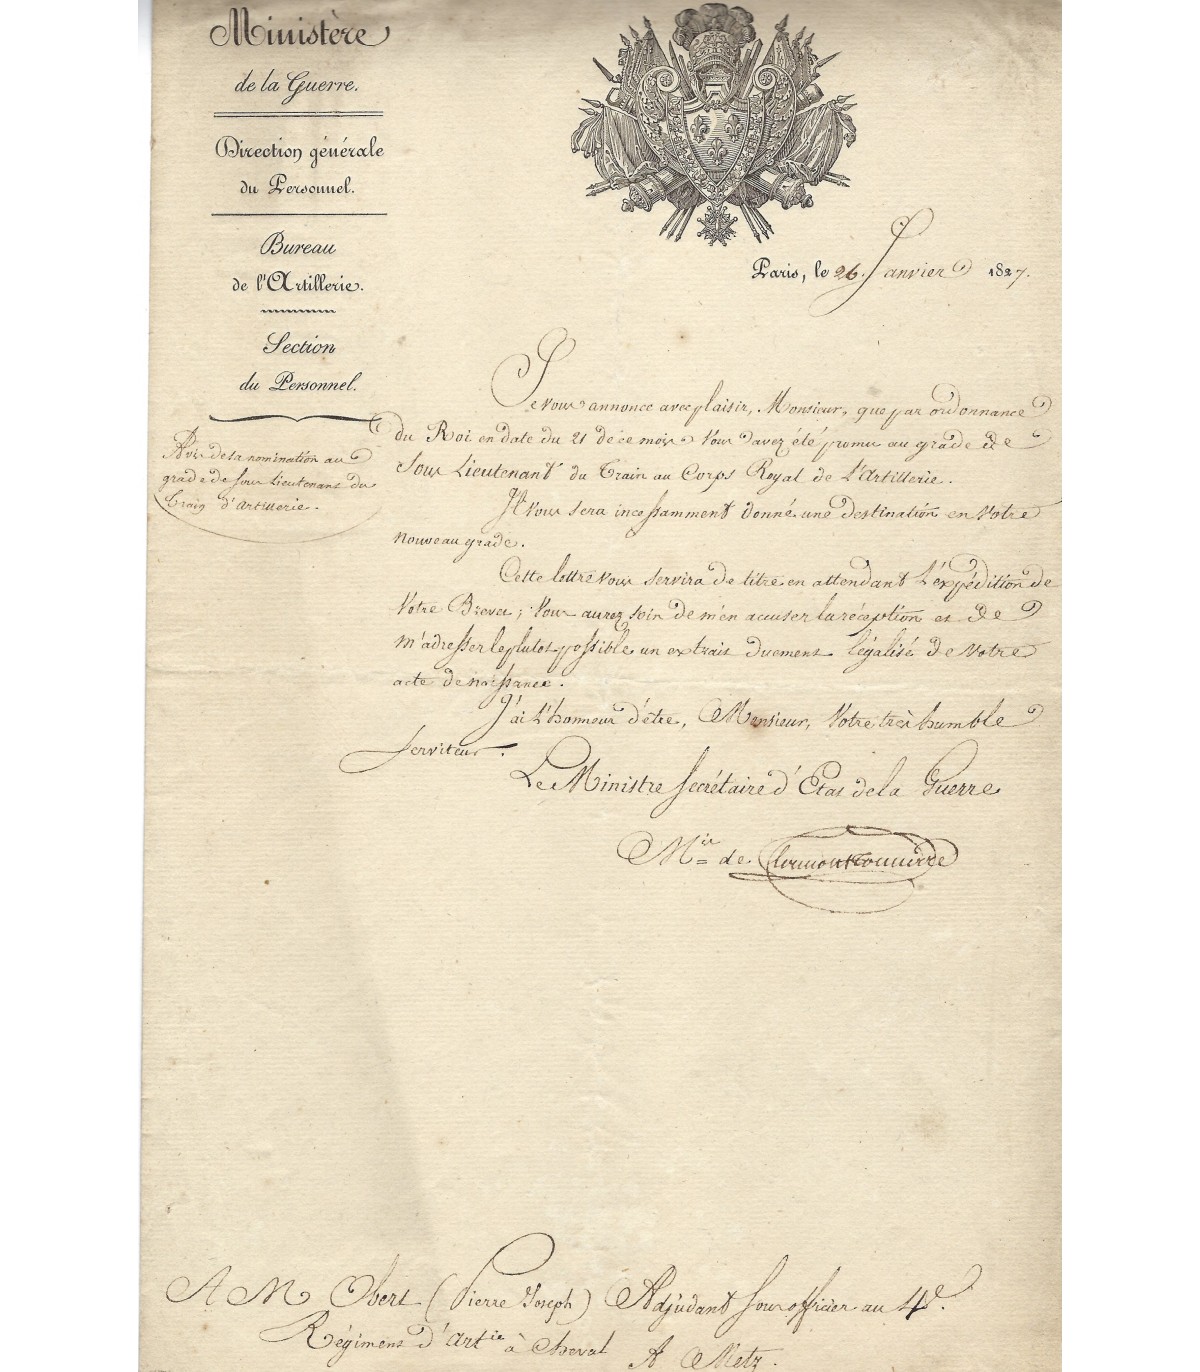 Ministère
de la Guerre.
Direction générale
du Personnel.
Bureau
de l'Artillerie.
Section
du Personnel.
Avis de la nomination au
grade de Sous Lieutenant du
Train d'Artillerie.
Paris, le 26. Janvier 1827.
Je vous annonce avec plaisir, Monsieur, que par ordonnance
du Roi en date du 21 de ce mois vous avez été promu au grade de
Sous Lieutenant du Train au Corps Royal de l'Artillerie.
Il vous sera incessamment donné une destination en votre
nouveau grade.
Cette lettre vous servira de titre en attendant l'expédition de
votre Brevet; vous aurez soin de m'en accuser la réception et de
m'adresser le plutot possible un extrait duement légalisé de votre
acte de naissance.
J'ai l'honneur d'être, Monsieur, votre très humble
Serviteur.
Le Ministre Secrétaire d'Etat de la Guerre
M.is de Clermont Tonnerre
A M Obert (Pierre Joseph) Adjudant Sous officier au 4e.
Régiment d'Artie à cheval
A Metz.